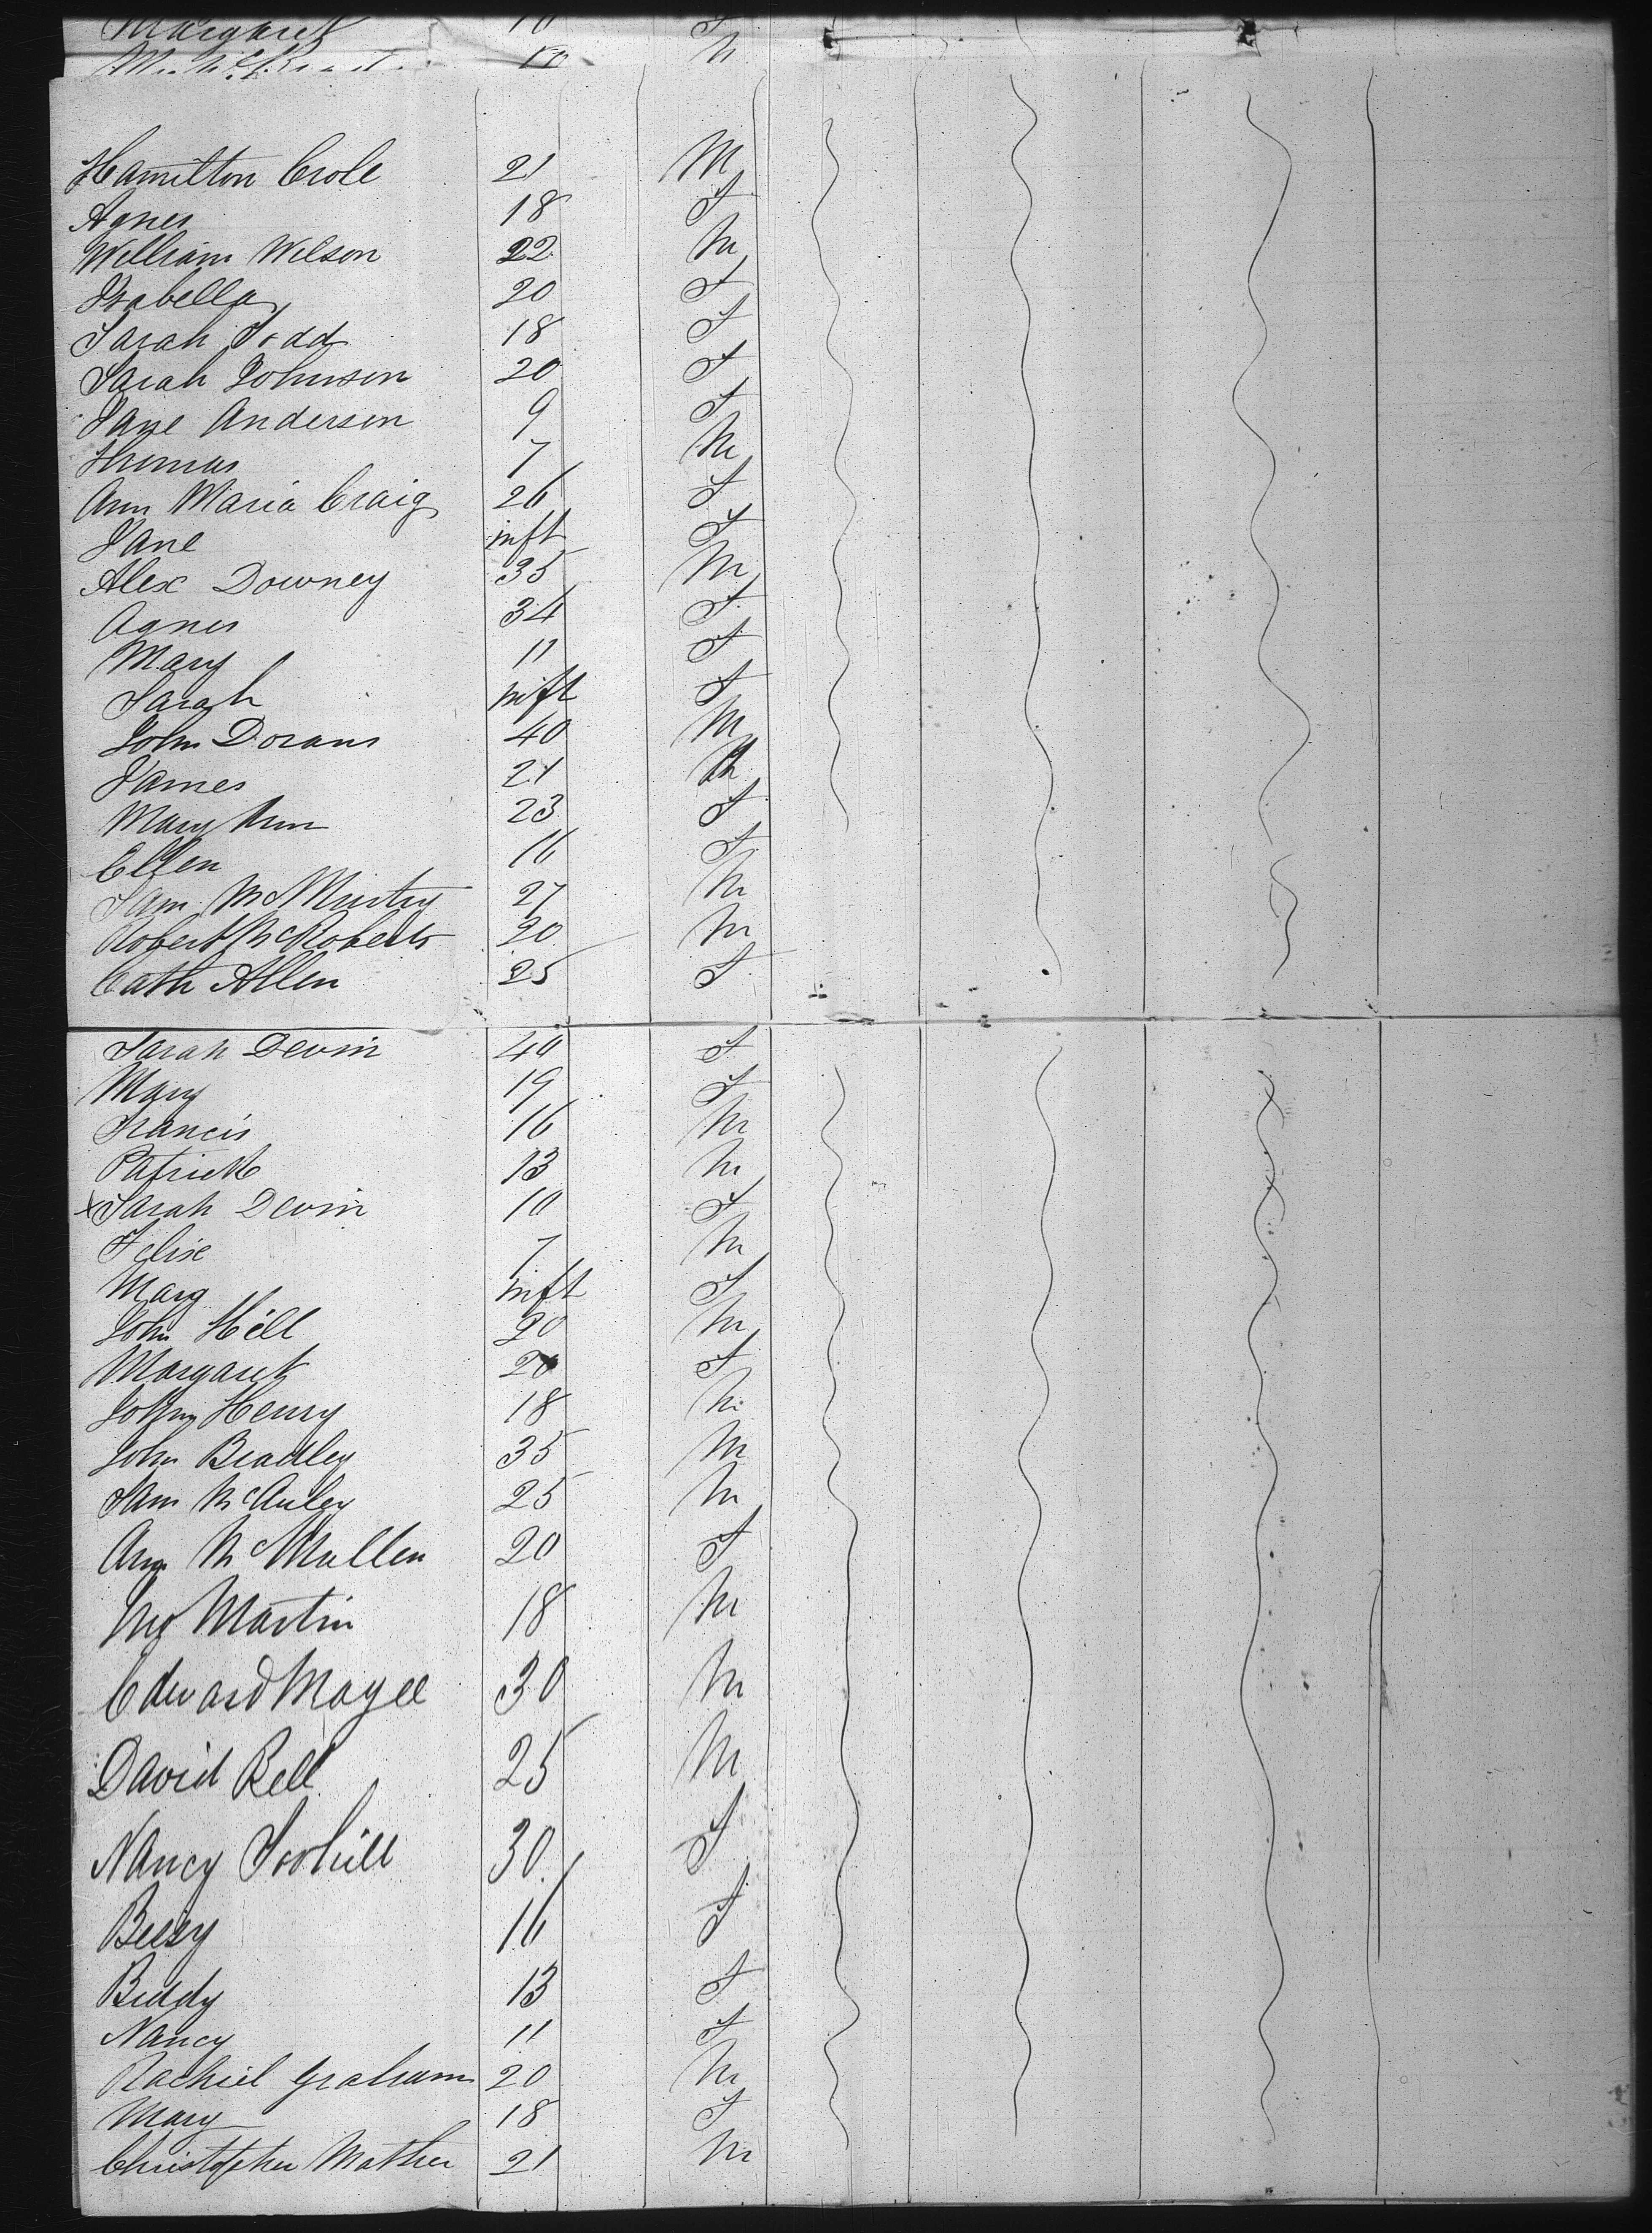 Margaret 10 F
10 M
Hamilton Crole 21 M
Agnes 18 F
William Wilson 22 M
Isabella 20 F
Sarah Todd 18 F
Sarah Johnson 20 F
Jane Anderson 9 F
Thomas 7 M
Ann Maria Craig 26 F
Jane inft F
Alex Downey 35 M
Agnes 34 F
Mary 11 F
Sarah inft F
John Dorans 40 M
James 21 M
Mary Ann 23 F
Ellen 16 F
Sam McMurtry 27 M
Robert McRoberts 20 M
Cath Allen 25 F
Sarah Devin 40 F
Mary 19 F
Francis 16 M
Patrick 13 M
x Sarah Devin 10 F
Felix 7 M
Marg inft F
John Hill 20 M
Margaret 20 F
John Henry 18 M
John Bradley 35 M
Sam McAuley 25 M
Ann McMullen 20 F
Martin 18 M
Edward Magee 30 M
David Bell 25 M
Nancy Toohill 30 F
Betsy 16 F
Biddy 13 F
Nancy 11 F
Rachiel Graham 20 M
Mary 18 F
Christopher Mather 21 M